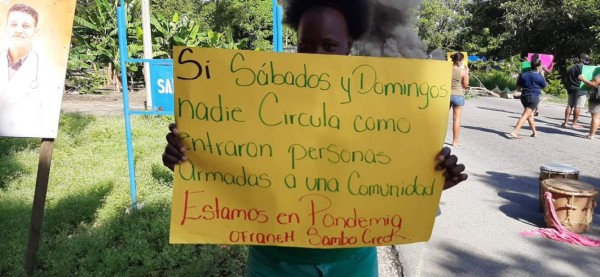 Si Sábados y Domingos
nadie Circula como
entraron personas
armadas a una Comunidad
Estamos en Pandemia
OFraneH Sambo Creek
SA